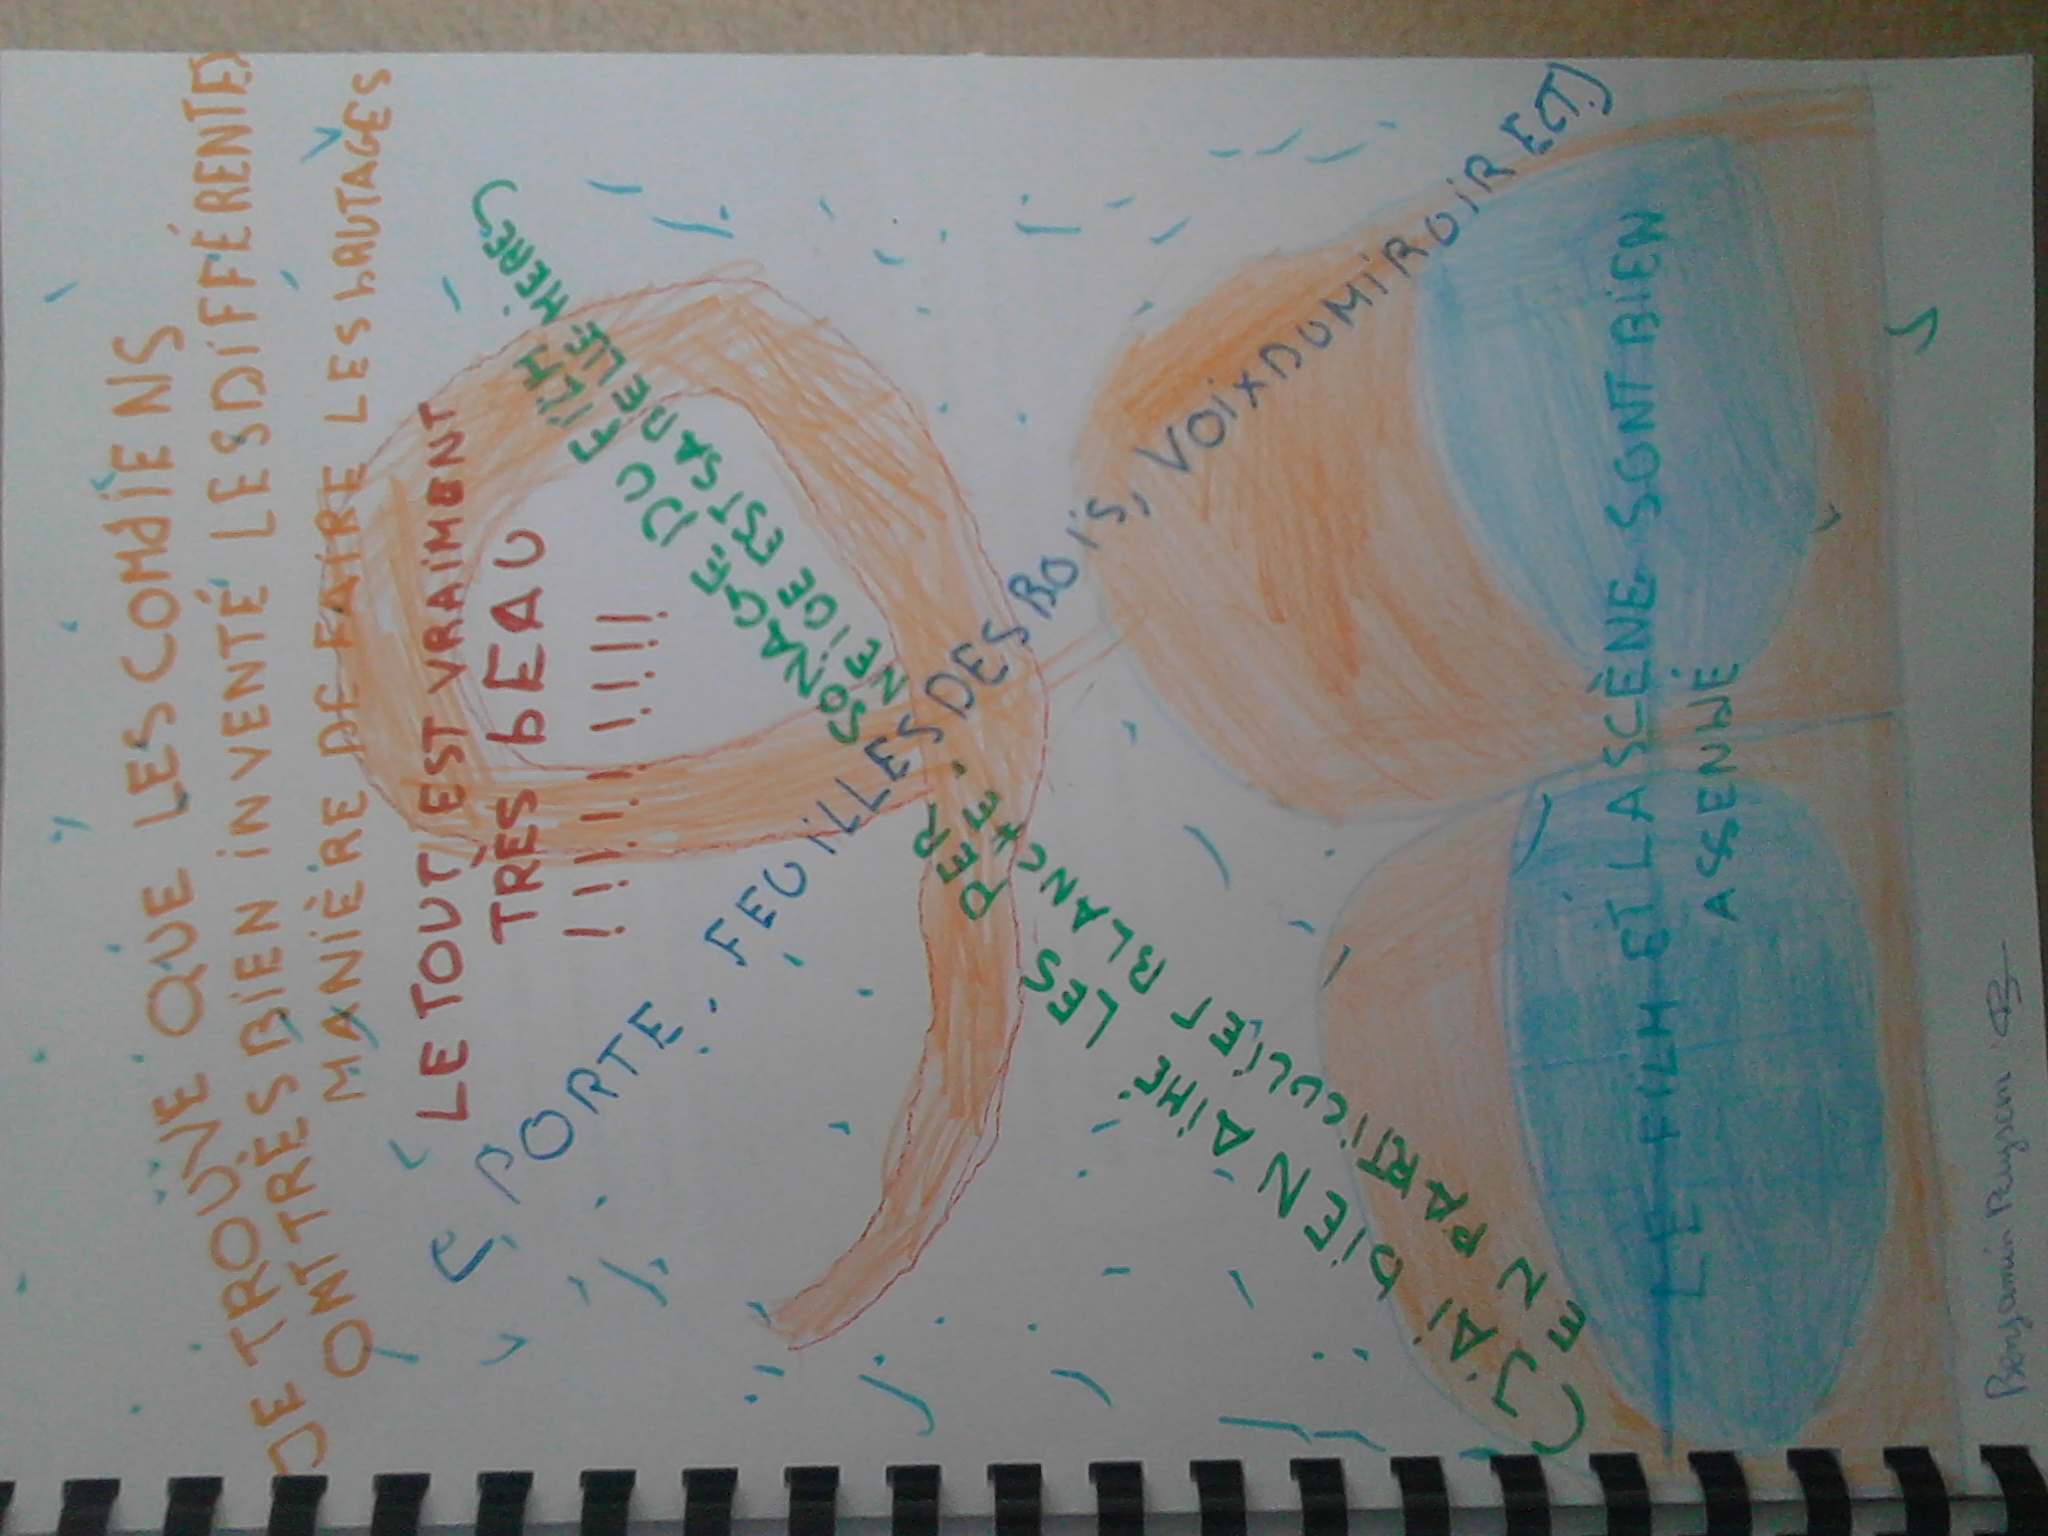 JE TROUVE QUE LES COMdIENS
ONT TRÈS BIEN INVENTÉ LES DIFFÉRENTES
MANIÈRE DE FAIRE LES bRUTAGES
LE TOUT EST VRAIMENT
TRÈS bEAU
!!!!!!!!
(PORTE. FEUILLES DES BOIS, VOIX DU MIROIR ECT.)
(J'AI bIEN AIMÉ LES PER.
SONAGE DU FILM
EN PARTICULIER BLANCHE.
NEIGE EST SA BELLE MÈRE)
LE FILM ET LA SCÈNE SONT BIEN
ASSEMblÉ
Benjamin